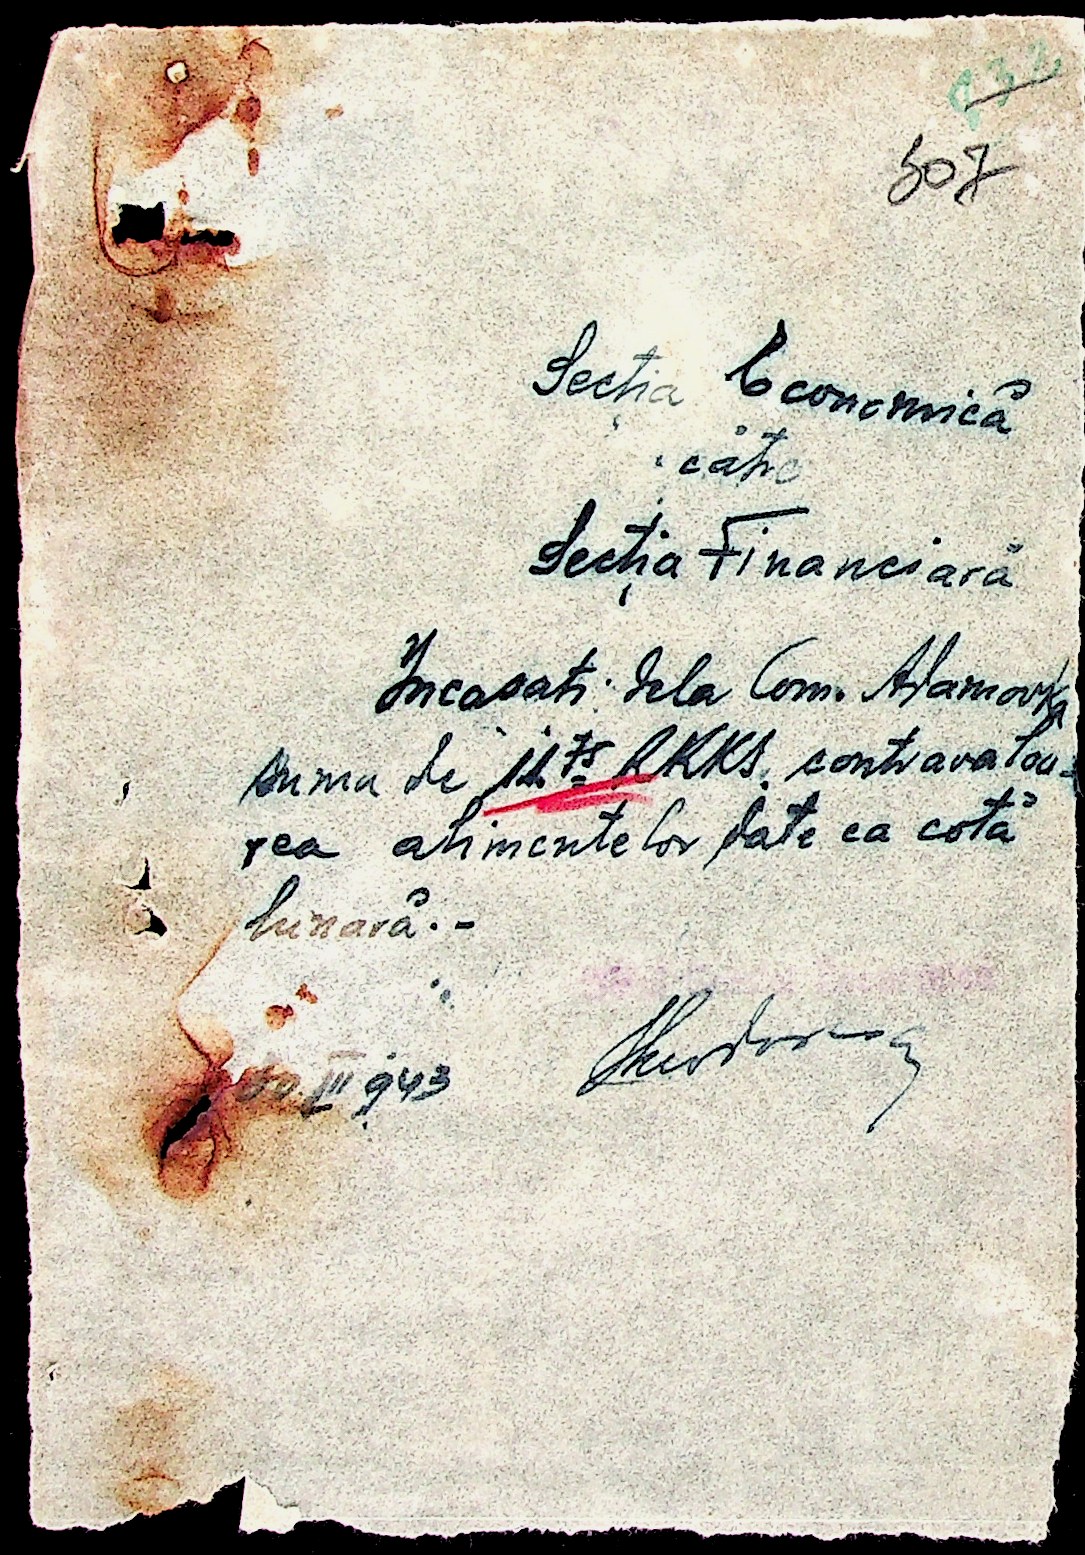 507
Secția Economică
către
Secția Financiară
Incasati dela Com. Adamovka
suma de RKKS. contravaloa-
rea alimentelor date ca cotă
lunară.-
III 943